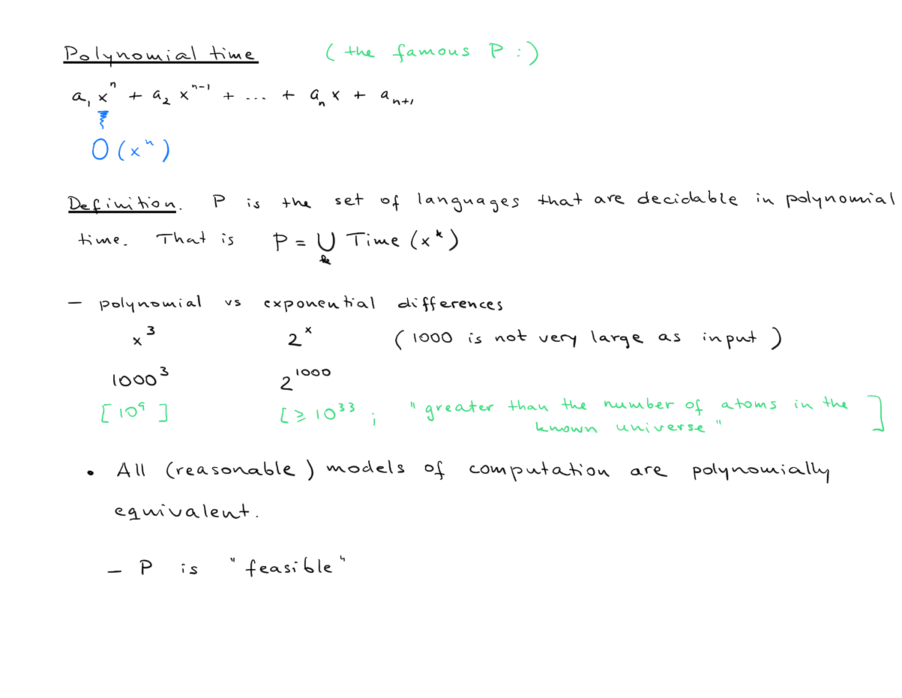 Polynomial time (the famous P :)
a₁xⁿ + a₂xⁿ⁻¹ + ... + aₙx + aₙ₊₁
O(xⁿ)
Definition. P is the set of languages that are decidable in polynomial
time. That is P = ⋃ₖ Time(xᵏ)
– polynomial vs exponential differences
x³ 2ˣ (1000 is not very large as input)
1000³ 2¹⁰⁰⁰
[10⁹] [≥ 10³³; "greater than the number of atoms in the
known universe"]
• All (reasonable) models of computation are polynomially
equivalent.
– P is "feasible"